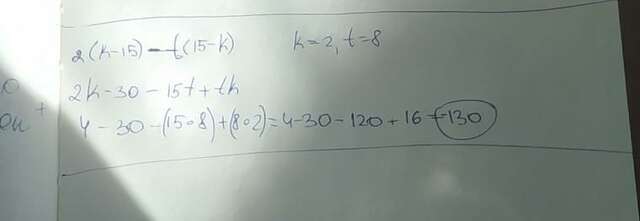 2(k-15) - t(15-k) k=2, t=8
2k-30 - 15t + tk
4 - 30 - (15∘8) + (8∘2) = 4-30 - 120 + 16 = -130